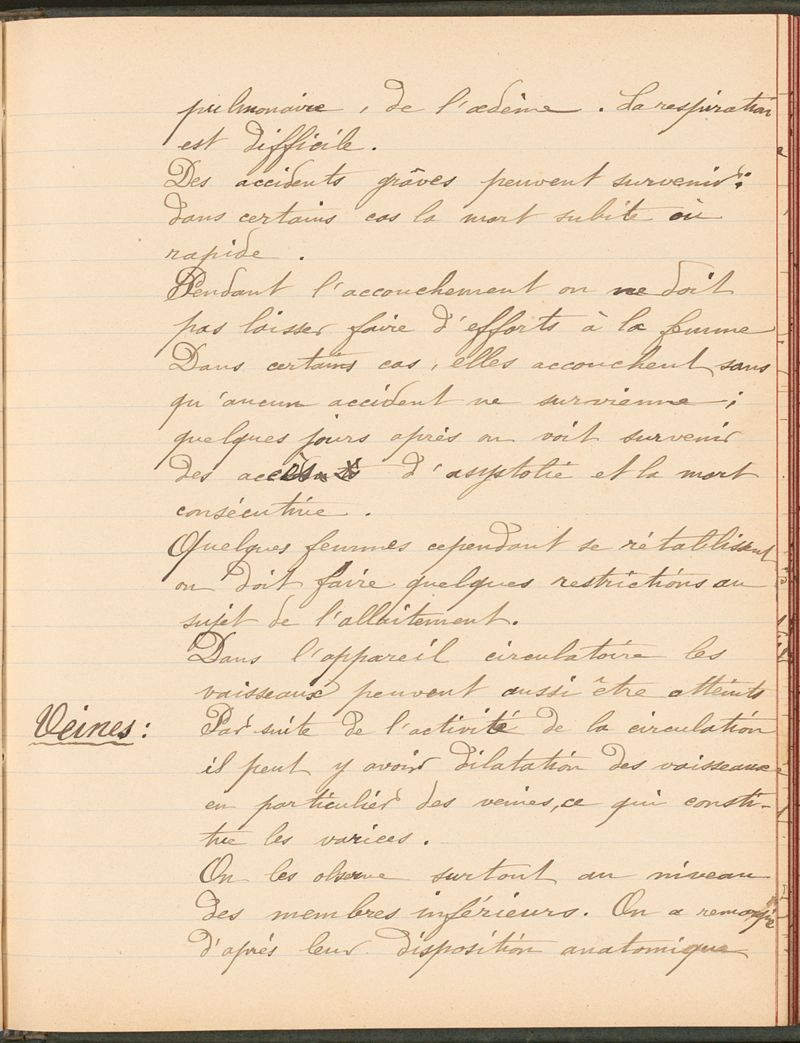 pulmonaire, de l'œdème. La respiration
est difficile.
Des accidents grâves peuvent survenir:
dans certains cas la mort subite où
rapide.
Pendant l'accouchement on ne doit
pas laisser faire d'efforts à la femme
Dans certains cas, elles accouchent sans
qu'aucun accident ne survienne;
quelques jours après on voit survenir
des accès d'asystolie et la mort
consécutive.
Quelques femmes cependant se rétablissent
on doit faire quelques restrictions au
sujet de l'allaitement.
Dans l'appareil circulatoire les
vaisseaux peuvent aussi être atteints
Veines: Par suite de l'activité de la circulation
il peut y avoir dilatation des vaisseaux
en particulier des veines, ce qui consti-
tue les varices.
On les observe surtout au niveau
des membres inférieurs. On a remarqué
d'après leur disposition anatomique